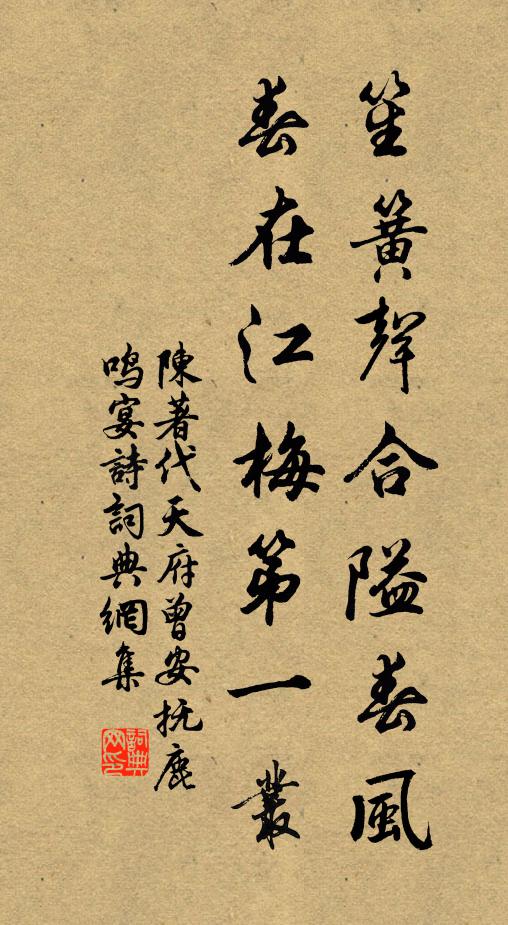 笙簧聲合隘春風
春在江梅第一叢
陳著代天府曾安抚鹿
鳴宴詩詞典網集
詞典网印